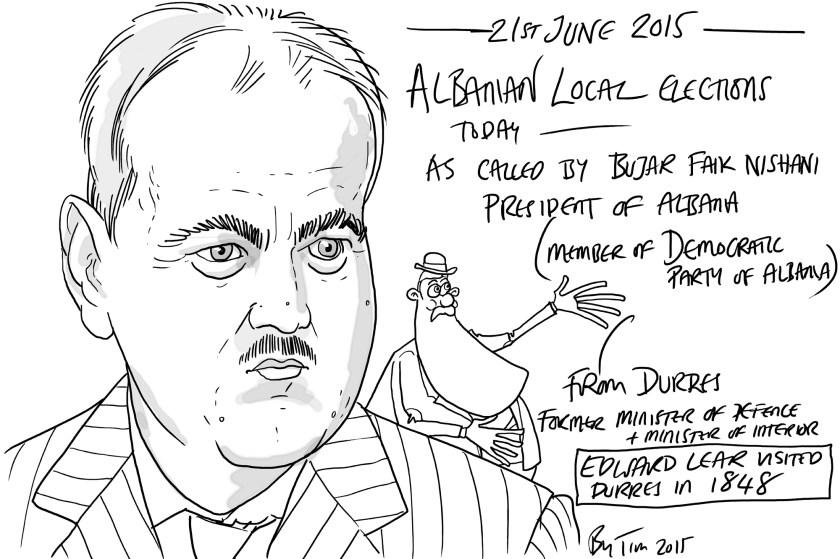 21ST JUNE 2015
ALBANIAN LOCAL ELECTIONS
TODAY
AS CALLED BY BUJAR FAIK NISHANI
PRESIDENT OF ALBANIA
(MEMBER OF DEMOCRATIC
PARTY OF ALBANIA)
FROM DURRES
FORMER MINISTER OF DEFENCE
+ MINISTER OF INTERIOR
EDWARD LEAR VISITED
DURRES IN 1848
By Tim 2015